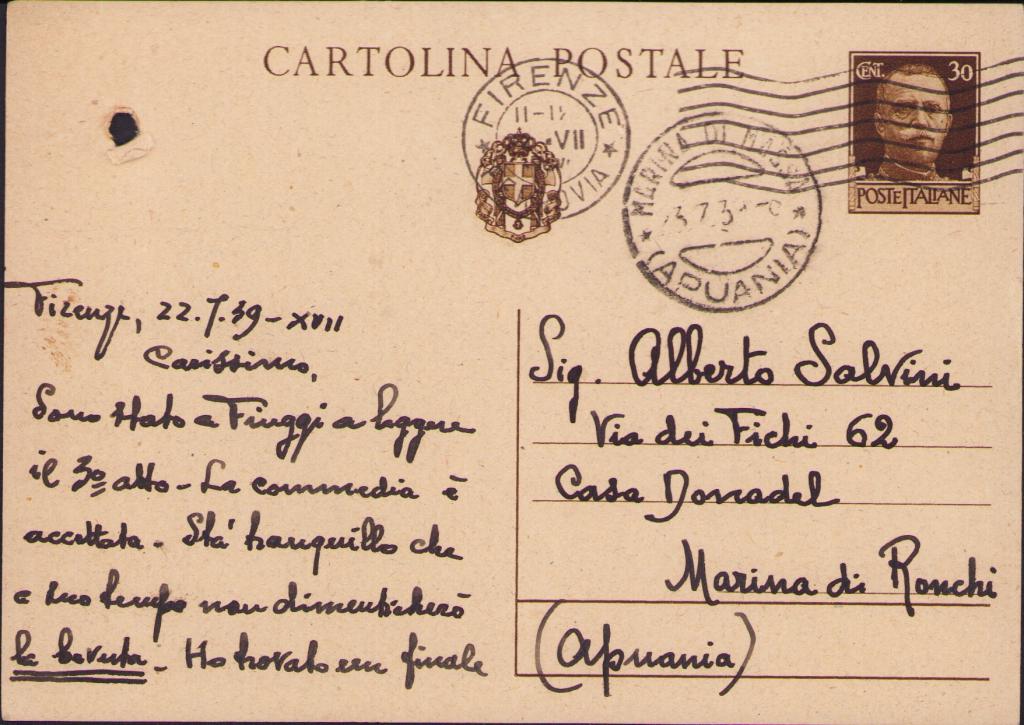 CARTOLINA POSTALE
CENT. 30
POSTE ITALIANE
FIRENZE
VII
MARINA DI MASSA
(APUANIA)
Firenze, 22.7.39-XVII
Carissimo,
Sono stato a Fiuggi a leggere
il 3º atto - La commedia è
accettata. Stà tranquillo che
a suo tempo non dimenticherò
la bevuta. Ho trovato un finale
Sig. Alberto Salvini
Via dei Fichi 62
Casa Donadel
Marina di Ronchi
(Apuania)